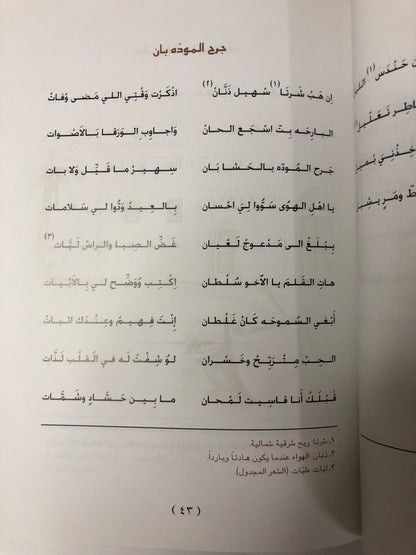 جرح الموده بان
إن هَبْ شَرتَا(١) سْهيل ذَنَّان(٢) اذكَرْت وَقْتِي اللي مَضى وْفات
البارِحَه بِتْ اسْجَع الحان وَاجاوِب الوَرْقا بَالاصْوات
جَرح المُودّه بالحَشا بَان سِهيرْ ما قَيِّل وَلا بات
يا اهْل الهوى سَوُّوا لِيَ احْسان بالعِيدْ وَدُّوا لي سَلامات
يِبْلَغْ الى مَدعوجْ لَعْيان غَضِّ الصِبا والراسْ لَيَّات(٣)
هاتِ القَلَمْ يا الآخو سُلْطان اِكْتِب وُوَضِّح لي بِالابْيات
أَبْغي السُموحَه كَانْ غَلْطان اِنْتْ فِهيمْ وعِنْدِك اثْبات
الحِبْ مِتْرَبِّحْ وخَسْران لَوْ شِفْتْ لَه في القَلْب لَذّات
قَبْلَكْ أنا قاسيت لَمْحان ما بِين حَسّادٍ وشَمّات
١. شرتا: ريح شرقية شمالية.
٢. ذنان: الهواء عندما يكون هادئاً وبارداً.
٣. ليّات: طيّات. (الشعر المجدول).
( ٤٣ )